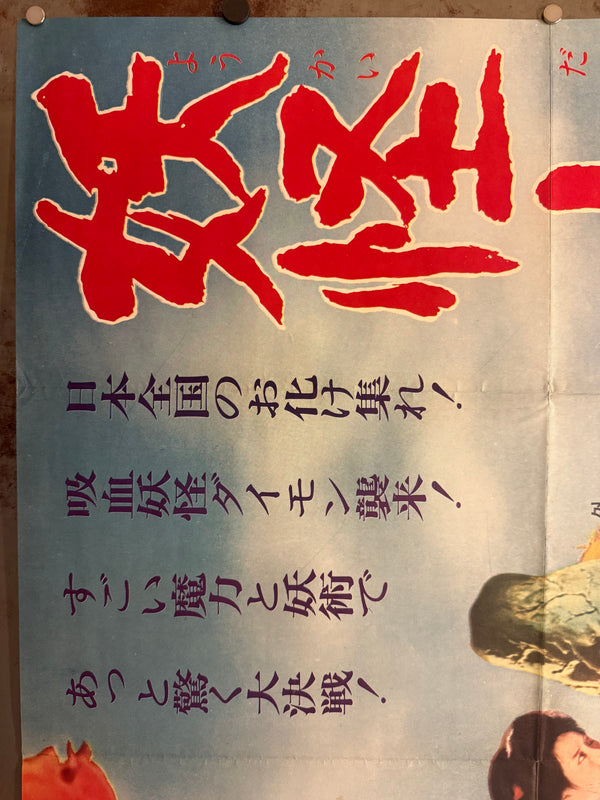 ようかいだ
妖怪
日本全国のお化け集れ！
吸血妖怪ダイモン襲来！
すごい魔力と妖術で
あっと驚く大決戦！